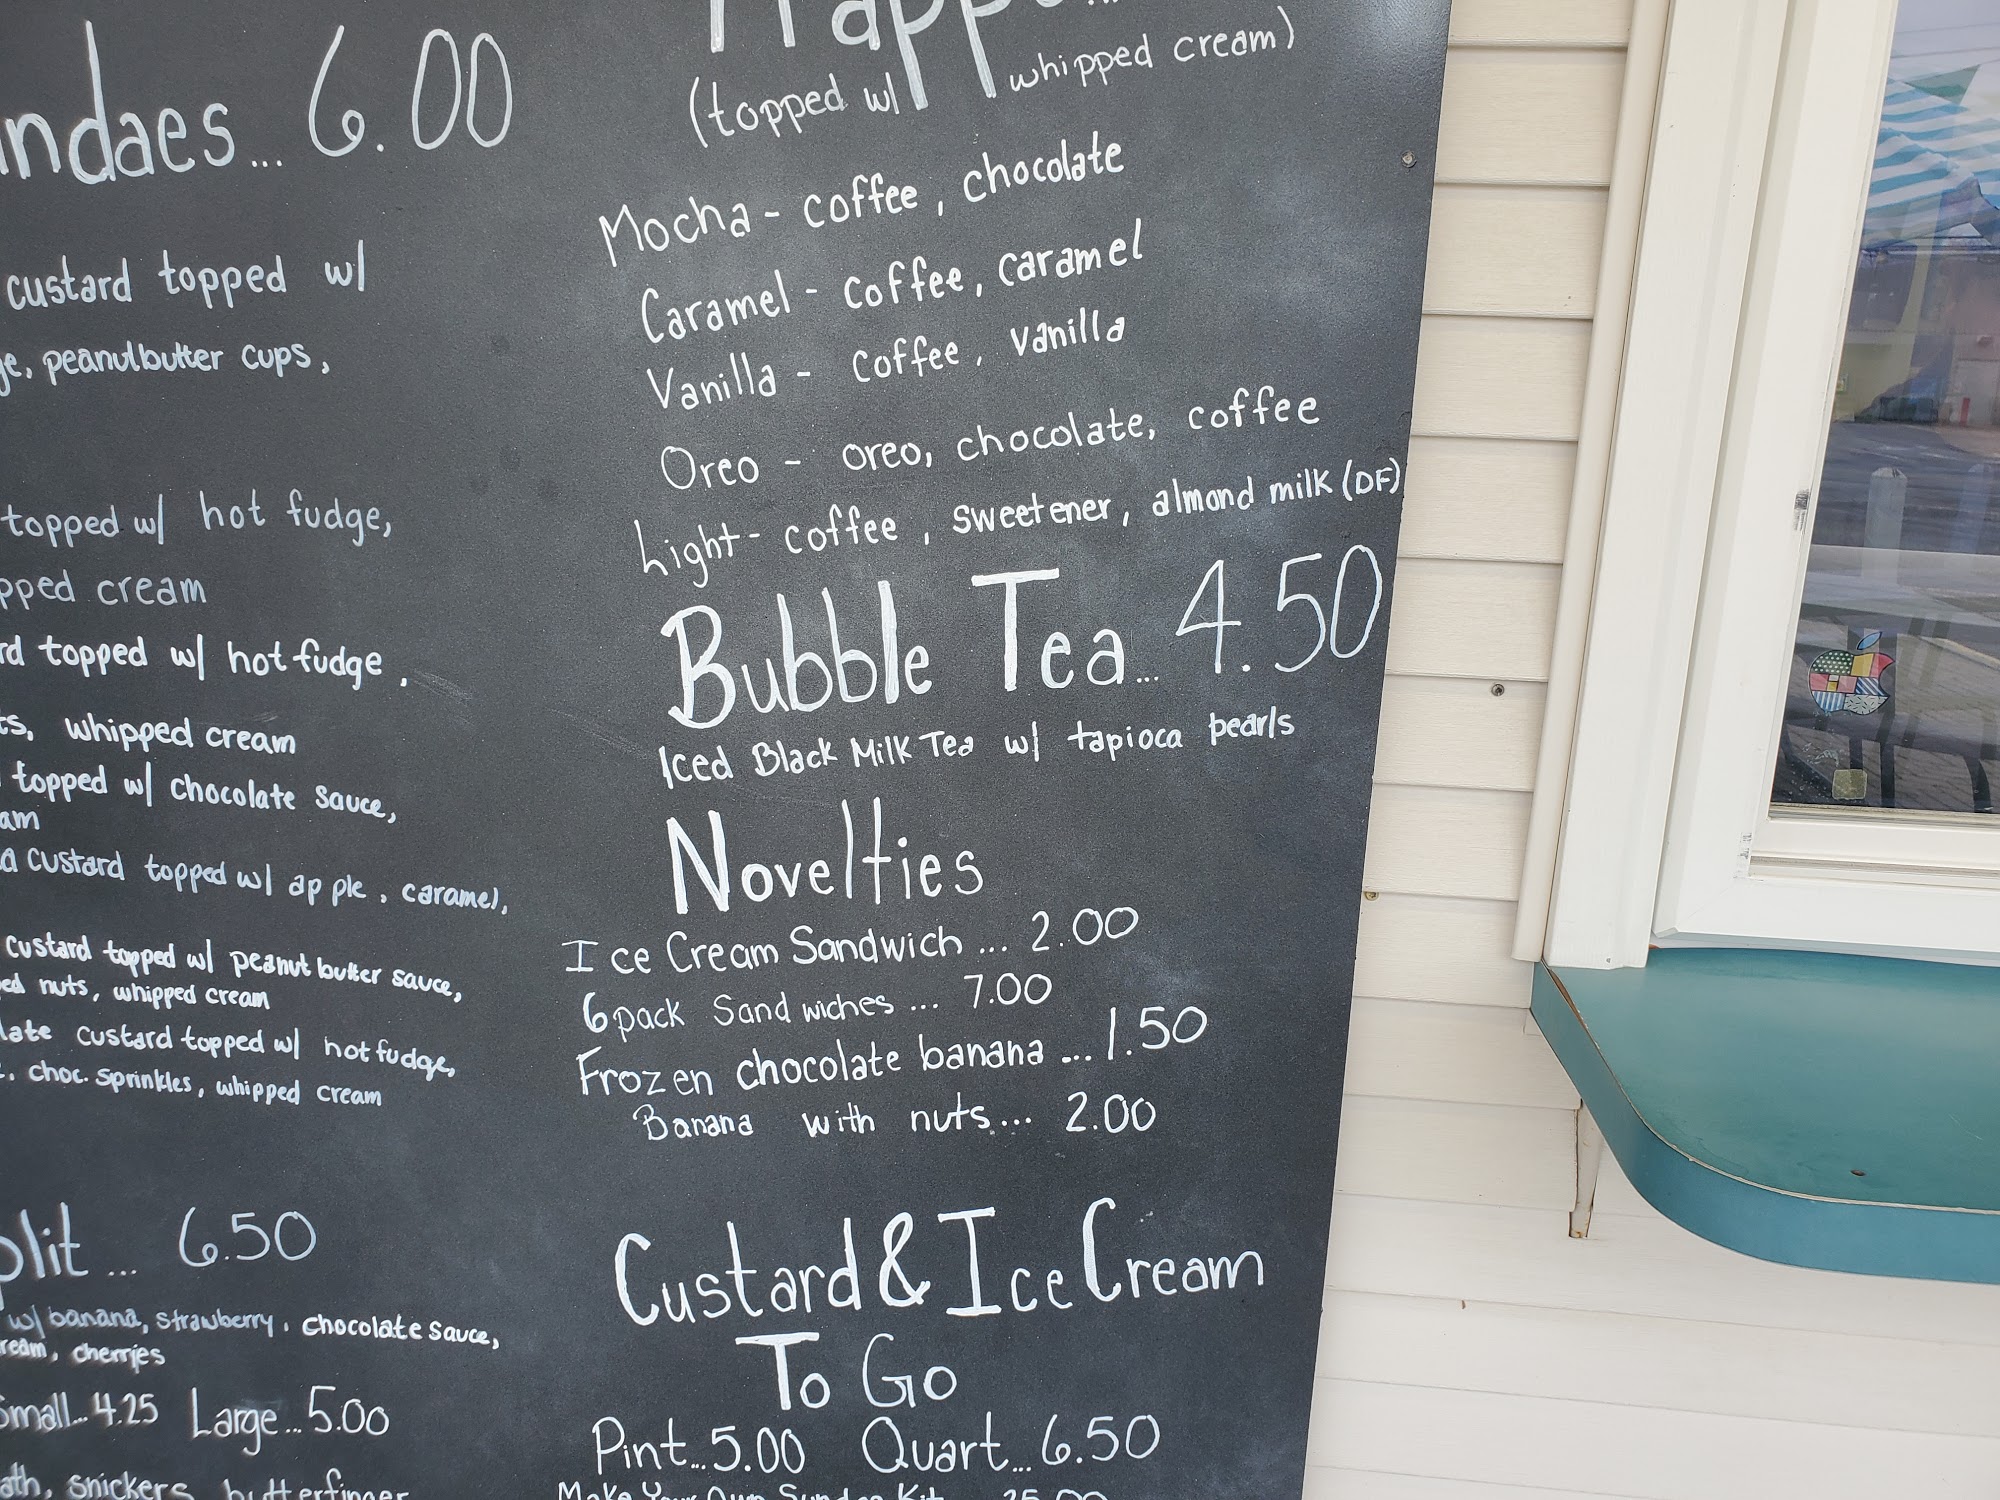 ndaes... 6.00
custard topped w/
peanutbutter cups,
topped w/ hot fudge,
cream
topped w/ hot fudge,
whipped cream
topped w/ chocolate sauce,
custard topped w/ apple, caramel,
custard topped w/ peanut butter sauce,
nuts, whipped cream
custard topped w/ hot fudge,
choc. sprinkles, whipped cream
plit... 6.50
w/ banana, strawberry, chocolate sauce,
cherries
Small... 4.25 Large... 5.00
snickers, butterfinger
(topped w/ whipped cream)
Mocha - coffee, chocolate
Caramel - coffee, caramel
Vanilla - coffee, vanilla
Oreo - oreo, chocolate, coffee
Light - coffee, sweetener, almond milk (DF)
Bubble Tea... 4.50
Iced Black Milk Tea w/ tapioca pearls
Novelties
Ice Cream Sandwich ... 2.00
6 pack Sandwiches ... 7.00
Frozen chocolate banana ... 1.50
Banana with nuts... 2.00
Custard & Ice Cream
To Go
Pint... 5.00 Quart... 6.50
Make Your Own Sundae Kit